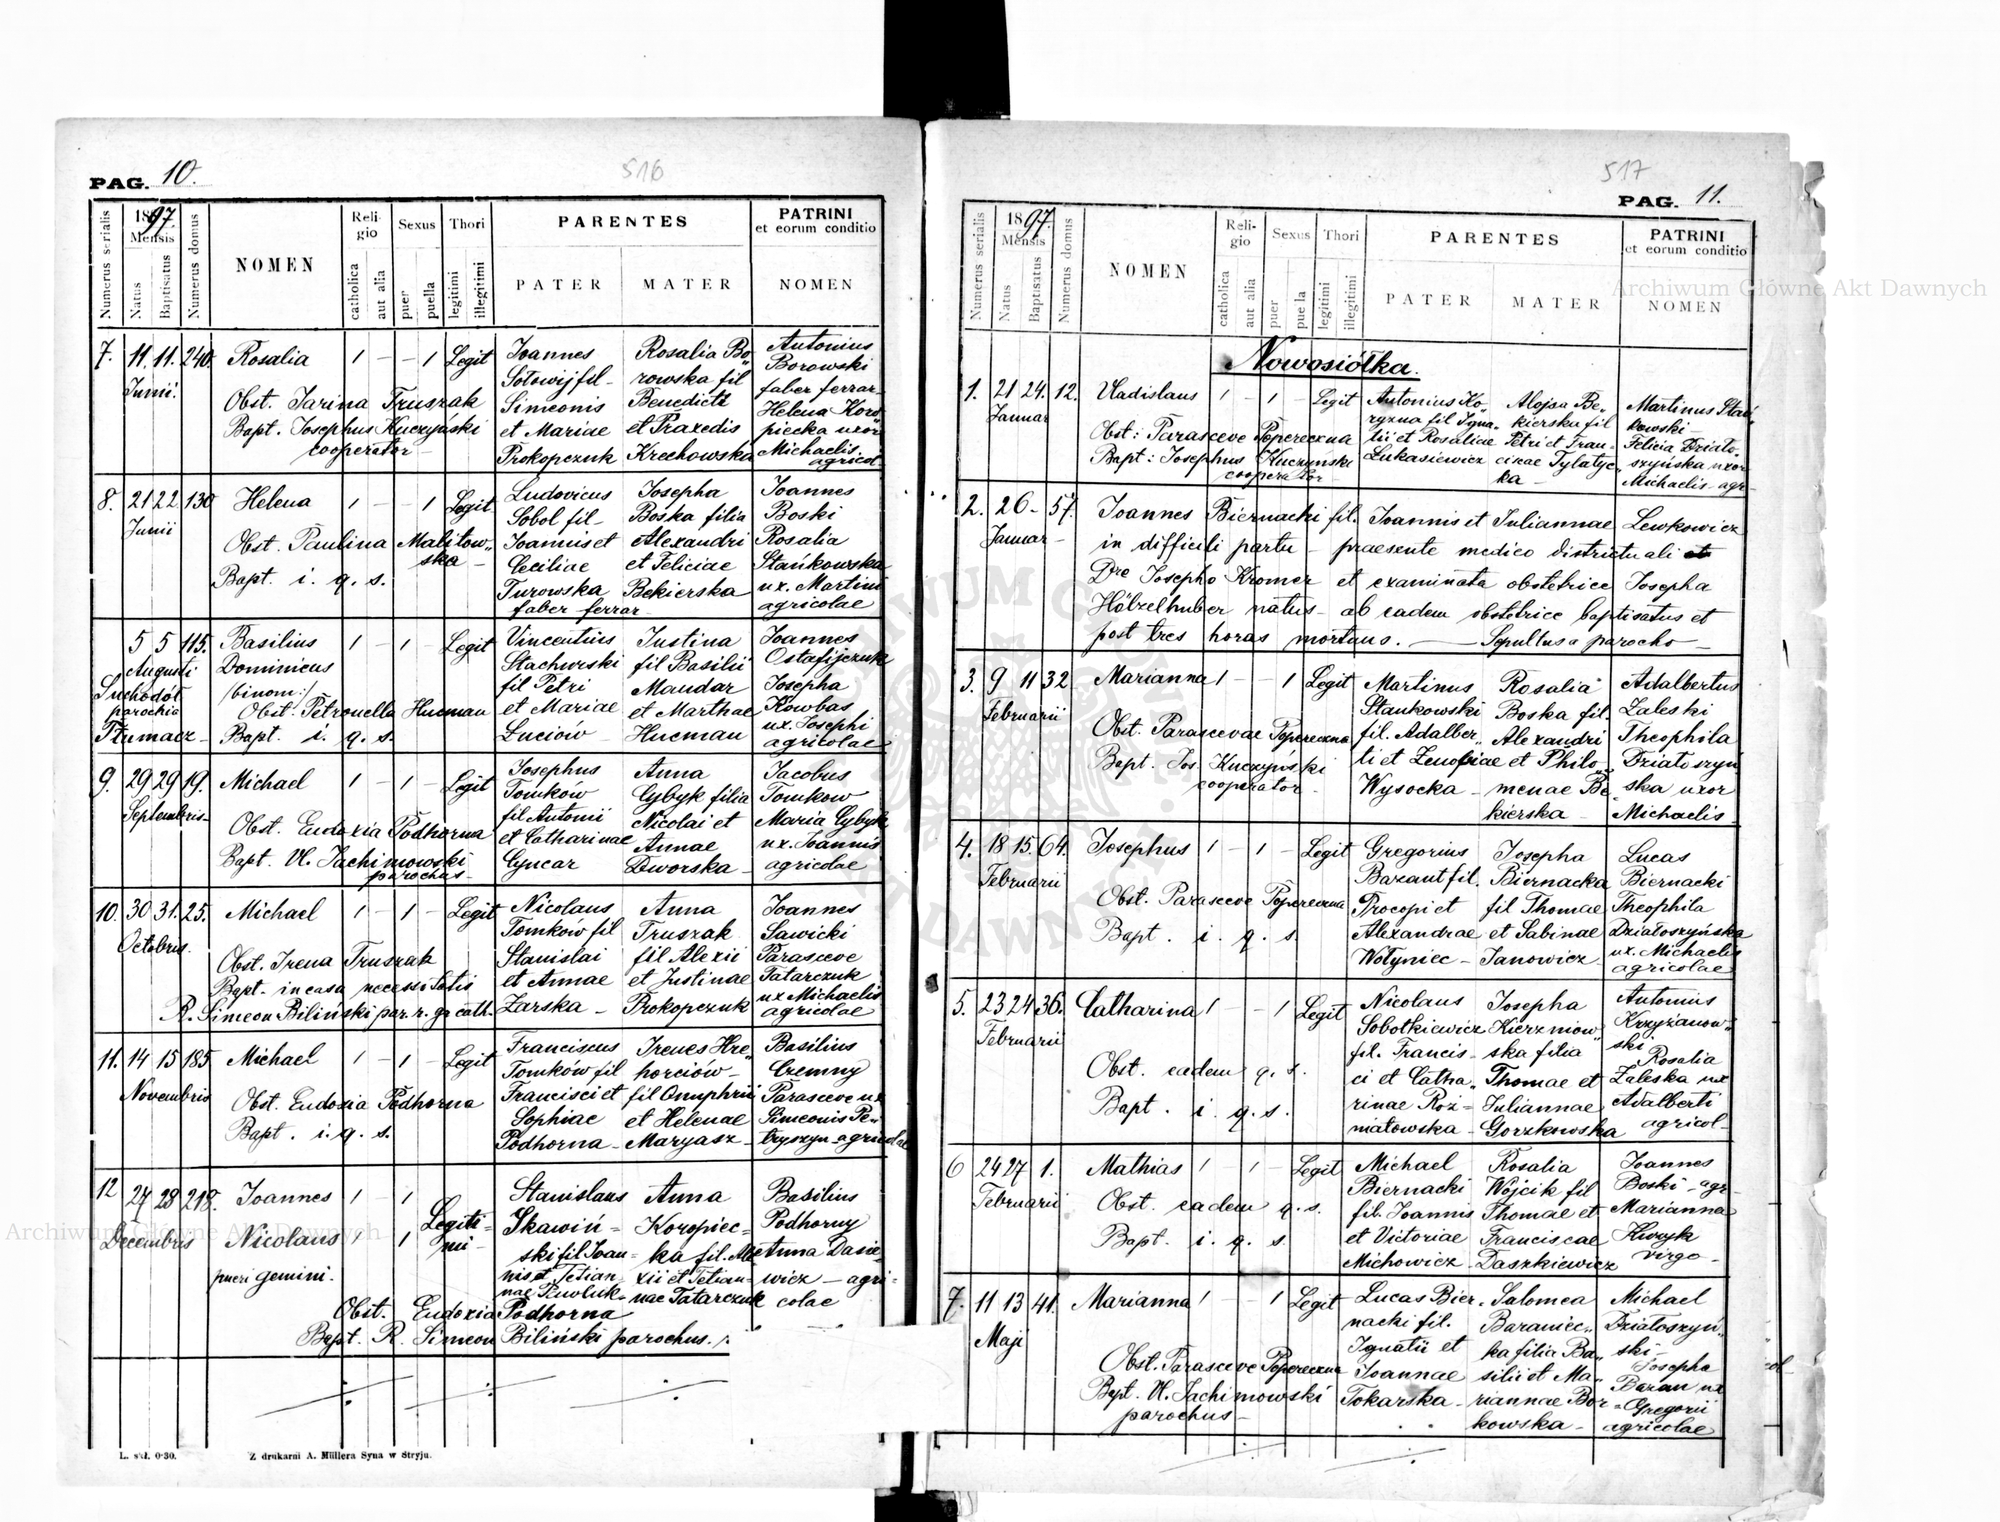 PAG. 10.
516
Numerus serialis
1897.
Mensis
Natus
Baptisatus
Numerus domus
NOMEN
Reli-
gio
catholica
aut alia
Sexus
puer
puella
Thori
legitimi
illegitimi
PARENTES
PATER
MATER
PATRINI
et eorum conditio
NOMEN
7. 11. 11. 240. Rosalia 1 - - 1 Legit Joannes Rosalia Bo„ Antonius
Junii. Sołowij fil- rowska fil Borowski
Obst. Jarina Truszak Simeonis Benedicti faber ferrar-
Bapt. Josephus Kuczyński et Mariae et Praxedis Helena Koro
cooperator Prokopczuk Krechowska piecka uxor
Michaelis
agricol-
8. 21 22 130 Helena 1 - - 1 Legit. Ludovicus Josepha Joannes
Junii Sobol fil- Boska filia Boski
Obst. Paulina Malitow„ Joannis et Alexandri Rosalia
ska - Ceciliae et Feliciae Stańkowska
Bapt. i. q. s. Turowska Bekierska ux. Martini
faber ferrar- agricolae
5 5 115. Basilius 1 - 1 - Legit Vincentius Justina Joannes
Augusti Dominicus Stachurski fil Basilii Ostafijczuk
Suchodoł /binom:/ fil Petri Mandar Josepha
parochia Obst. Petronella Hucman et Mariae et Marthae Kowbas
Tłumacz Bapt. i. q. s. Łuciów Hucman ux. Josephi
agricolae
9. 29 29 19. Michael 1 - 1 - Legit Josephus Anna Jacobus
Septembris Tomków Cybyk filia Tomkow
Obst. Eudoxia Podhorna fil Antonii Nicolai et Maria Cybyk
Bapt. Vl. Jachimowski et Catharinae Annae ux. Joannis
parochus- Cyncar Dworska agricolae
10. 30 31. 25. Michael 1 - 1 - Legit Nicolaus Anna Joannes
Octobris. Tomkow fil Truszak Sawicki
Obst. Irena Truszak Stanislai fil Alexii Parasceve
Bapt. in casu necessitatis et Annae et Justinae Tatarczuk
R. Simeon Biliński par. r. gr cath. Zarska - Prokopczuk ux Michaelis
agricolae
11. 14 15 185 Michael 1 - 1 - Legit Franciscus Irenes Hre„ Basilius
Novembris Tomków fil horciów- Czemny
Obst. Eudoxia Podhorna Francisci et fil Onuphrii Parasceve ux
Bapt. i. q. s. Sophiae et Helenae Simeonis Pe-
Podhorna - Maryasz - tryszyn - agricolae
12 27 28 218. Joannes 1 - 1 Legiti- Stanislaus Anna Basilius
Decembris Nicolaus 1 1 mi- Skawiń= Koropiec= Podhorny
pueri gemini. ski fil Joan= ka fil. Ale Anna Dasie
nis et Tetian- xii et Tetian- wicz - agri-
nae Tatarczuk colae
Obst. Eudoxia Podhorna
Bapt. R. Simeon Biliński parochus.
L. skł. 0·30.
Z drukarni A. Müllera Syna w Stryju.
517
PAG. 11.
Numerus serialis
1897.
Mensis
Natus
Baptisatus
Numerus domus
NOMEN
Reli-
gio
catholica
aut alia
Sexus
puer
puella
Thori
legitimi
illegitimi
PARENTES
PATER
MATER
PATRINI
et eorum conditio
NOMEN
Nowosiółka.
1. 21 24. 12. Vladislaus 1 - 1 - Legit Antonius Ko„ Alojsa Be„ Martinus Stań
Januar ryzna fil Igna„ kierska fil kowski-
Obst: Parasceve Popereczna tii et Rosaliae Petri et Fran- Felicia Działo-
Bapt: Josephus Kuczyński Łukasiewicz ciscae Tylatyc„ szyńska uxor
cooperator ka - Michaelis - agr-
2. 26 - 57. Joannes Biernacki fil. Joannis et Juliannae Lewkowicz
Januar- in difficili partu - praesente medico districtuali
Dre Josepho Kromer et examinata obstetrice Josepha
Hölzelhuber natus - ab eadem obstetrice baptisatus et
post tres horas mortuus. — Sepultus a parocho-
3. 9 11 32 Marianna 1 - - 1 Legit Martinus Rosalia Adalbertus
Februarii Stankowski Boska fil. Zaleski
Obst. Parascevae Popereczna fil. Adalber„ Alexandri Theophila
Bapt. Jos. Kuczyński ti et Zenofiae et Philo„ Działoszyń
cooperator. Wysocka - menae Be„ ska uxor
kierska Michaelis
4. 18 15. 64. Josephus 1 - 1 - Legit Gregorius Josepha Lucas
Februarii Bazant fil. Biernacka Biernacki
Obst. Parasceve Popereczna Procopi et fil Thomae Theophila
Bapt. i. q. s. Alexandrae et Sabinae Działoszyńska
Wołyniec - Janowicz ux. Michaelis
agricolae
5. 23 24 36. Catharina 1 - - 1 Legit Nicolaus Josepha Antonius
Februarii Sobotkiewicz Kierzniow„ Krzyżanow„
fil. Francis- ska filia ski
Obst. eadem q. s. ci et Catha„ Thomae et Rosalia
Zaleska ux
Bapt. i. q. s. rinae Roż= Juliannae Adalberti
niatowska - Gorzkowska agricol-
6 24 27 1. Mathias 1 - 1 - Legit Michael Rosalia Joannes
Februarii Biernacki Wojcik fil Boski - agr-
Obst. eadem q. s. fil. Joannis Thomae et Marianna
Bapt. i. q. s. et Victoriae Franciscae
Michowicz - Daszkiewicz virgo-
7. 11 13 41. Marianna 1 - - 1 Legit Lucas Bier- Salomea Michael
Maji nacki fil. Baraniec„ Działoszyń„
Obst. Parasceve Popereczna Ignatii et ka filia Ba„ ski-
Bapt. Vl. Jachimowski Joannae silii et Ma- Josepha
parochus- Tokarska - riannae Bor- Baran ux
kowska - Gregorii
agricolae
Archiwum Główne Akt Dawnych
Archiwum Główne Akt Dawnych